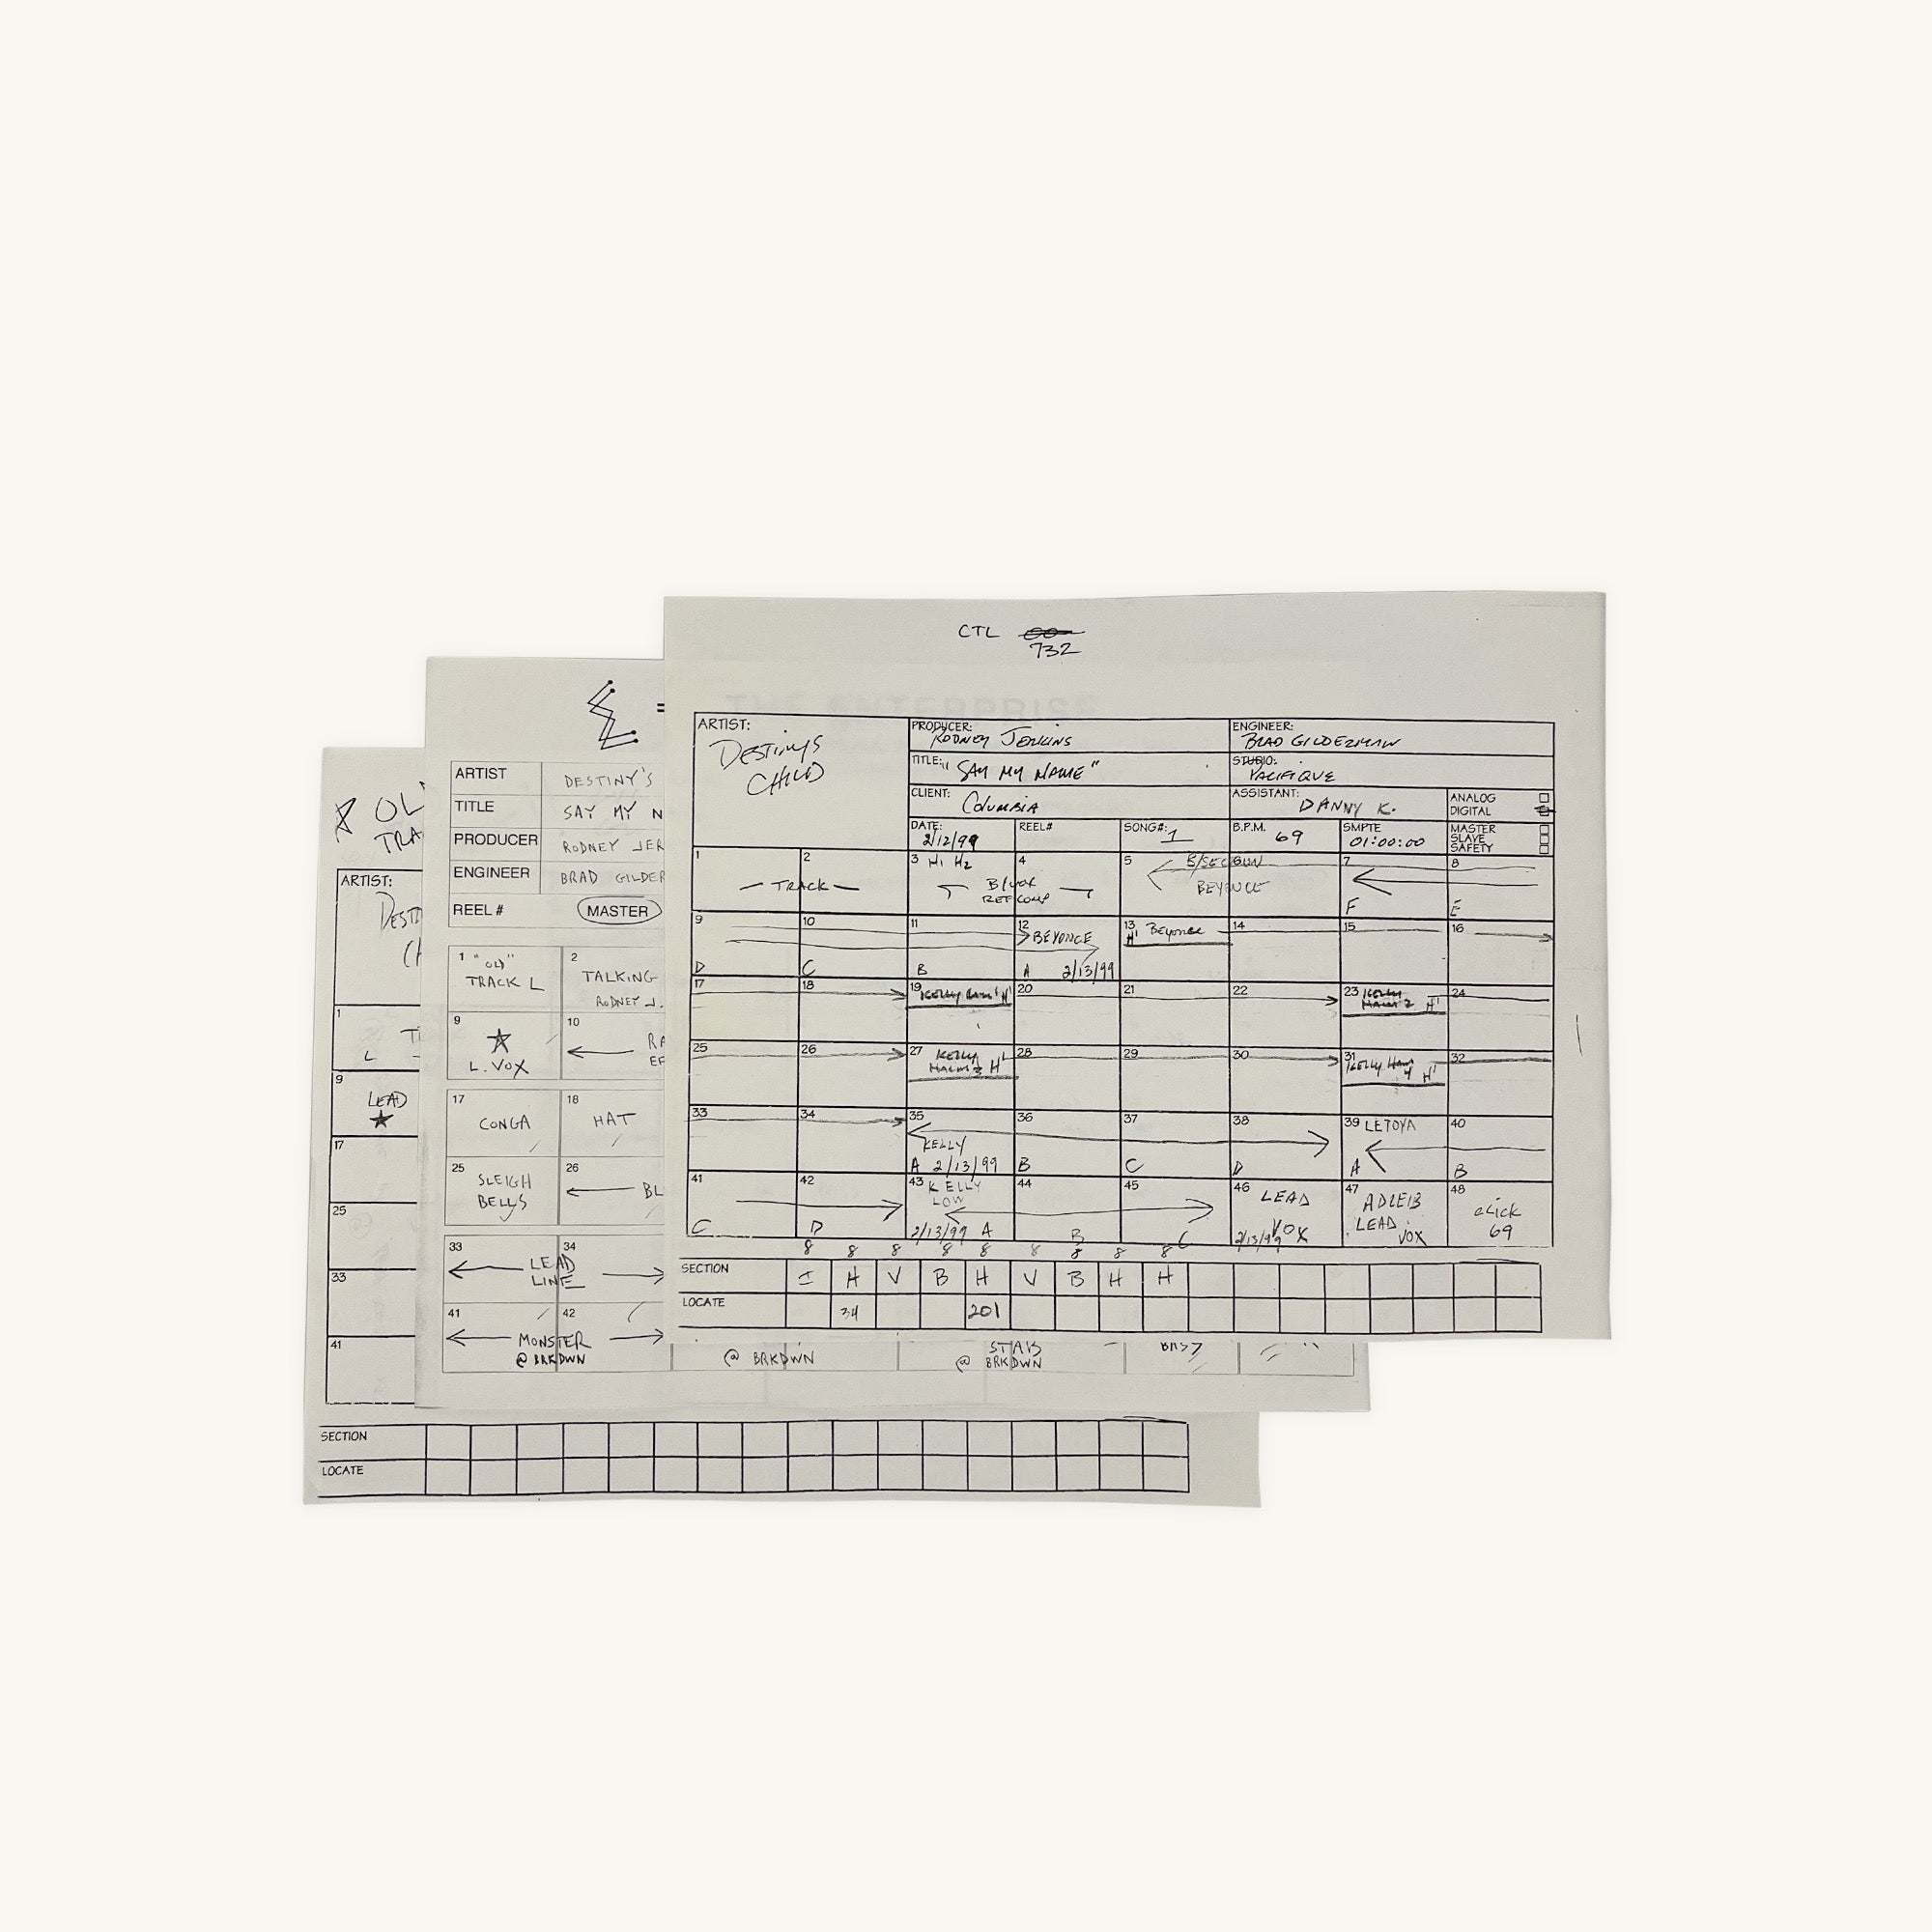 CTL
732
ARTIST:
DESTINYS
CHILD
PRODUCER:
RODNEY JERKINS
ENGINEER:
BRAD GILDERMAN
TITLE: "SAY MY NAME"
STUDIO:
PACIFIQUE
CLIENT:
COLUMBIA
ASSISTANT:
DANNY K.
ANALOG
DIGITAL
DATE:
2/12/99
REEL#
SONG#: 1
B.P.M. 69
SMPTE
01:00:00
MASTER
SLAVE
SAFETY
1 2 3 H1 H2 4 5 7 8
TRACK
B/VOX
REF COMP
BEYONCE
F E
9 10 11 12 BEYONCE 13 H1 Beyonce 14 15 16
D C B A 2/13/99
17 18 19 KELLY H1 20 21 22 23 KELLY 2 H1 24
25 26 27 KELLY 3 H1 28 29 30 31 KELLY HARM 4 H1 32
33 34 35 36 37 38 39 LETOYA 40
KELLY
A 2/13/99 B C D A B
41 42 43 KELLY 44 45 46 LEAD 47 ADLEIB 48 CLICK
LOW VOX LEAD 69
C D 2/13/99 A B C 2/13/99 VOX
8 8 8 8 8 8 8 8 8
SECTION I H V B H V B H H
LOCATE 34 201
ARTIST DESTINY'S
TITLE SAY MY N
PRODUCER RODNEY JER
ENGINEER BRAD GILDER
REEL # MASTER
1 "OLD" 2
TRACK L TALKING
RODNEY J.
9 10
L. VOX RA
EF
17 18
CONGA HAT
25 26
SLEIGH BL
BELLS
33 34
LEAD
LINE
41 42
MONSTER
@ BRKDWN @ BRKDWN STABS
@ BRKDWN
OL
TRA
ARTIST:
DEST
CH
1
L
9
LEAD
17
25
33
41
SECTION
LOCATE